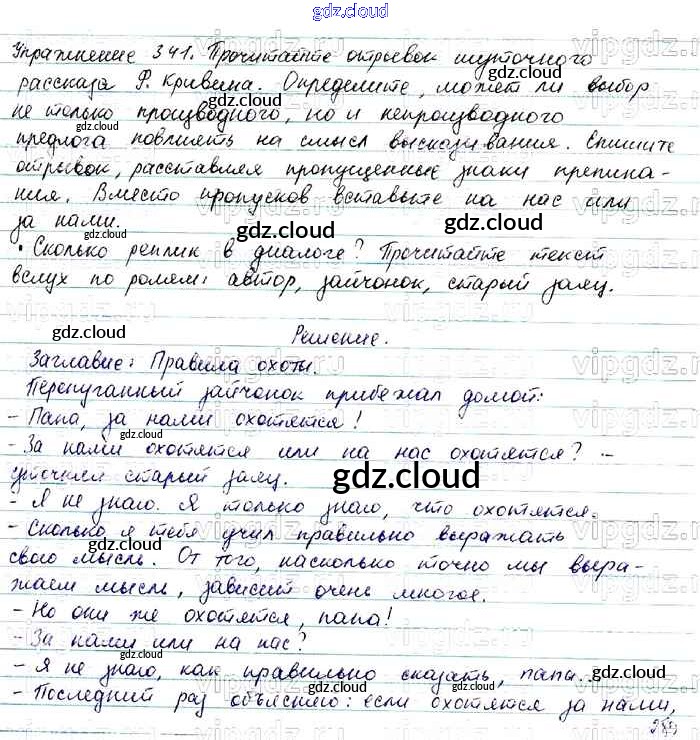 gdz.cloud
Упражнение 341. Прочитайте отрывок шуточного
рассказа Ф. Кривина. Определите, может ли выбор
не только производного, но и непроизводного
предлога повлиять на смысл высказывания. Спишите
отрывок, расставляя пропущенные знаки препина-
ния. Вместо пропусков вставьте на нас или
за нами.
• Сколько реплик в диалоге? Прочитайте текст
вслух по ролям: автор, зайчонок, старый заяц.
Решение.
Заглавие: Правила охоты.
Перепуганный зайчонок прибежал домой:
- Папа, за нами охотятся!
- За нами охотятся или на нас охотятся? -
уточнил старый заяц.
- Я не знаю. Я только знаю, что охотятся.
- Сколько я тебя учил правильно выражать
свою мысль. От того, насколько точно мы выра-
жаем мысль, зависит очень многое.
- Но они же охотятся, папа!
- За нами или на нас?
- Я не знаю, как правильно сказать, папа...
- Последний раз объясняю: если охотятся за нами,